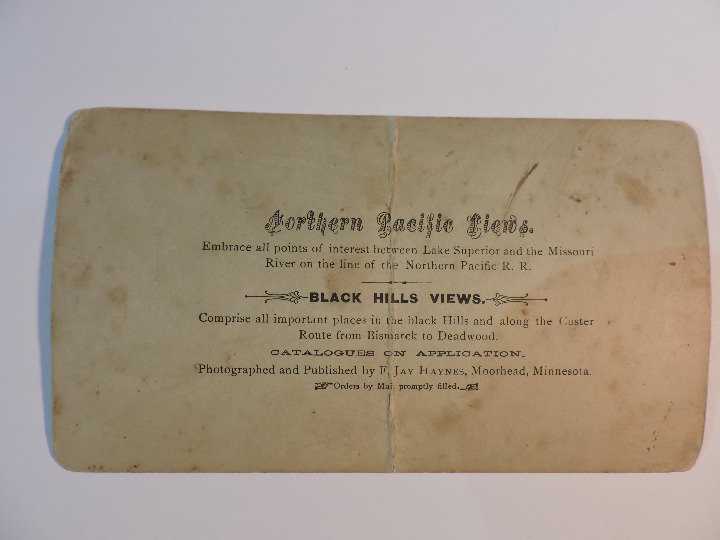 Northern Pacific Views.
Embrace all points of interest between Lake Superior and the Missouri
River on the line of the Northern Pacific R. R.
BLACK HILLS VIEWS.
Comprise all important places in the black Hills and along the Custer
Route from Bismarck to Deadwood.
CATALOGUES ON APPLICATION.
Photographed and Published by F. JAY HAYNES, Moorhead, Minnesota.
Orders by Mail promptly filled.